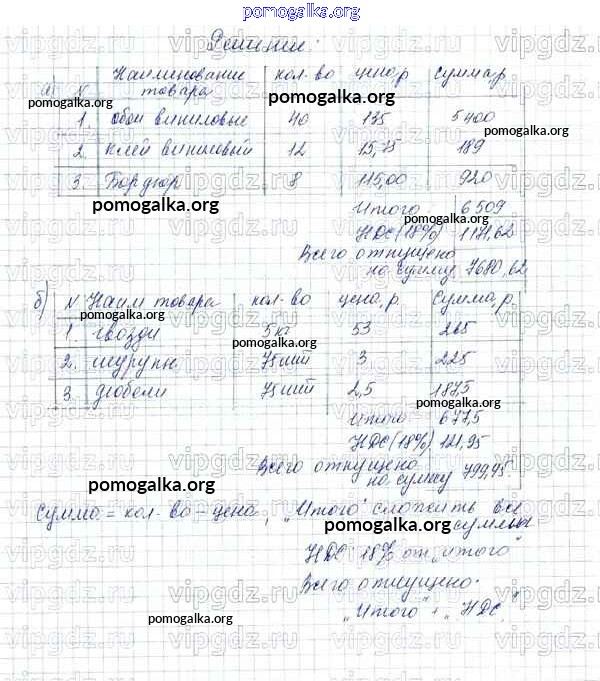 pomogalka.org
Решение:
а) N Наименование товара кол-во цена, р Сумма, р
pomogalka.org
pomogalka.org
1. обои виниловые 40 135 5400
pomogalka.org
2. клей виниловый 12 15,75 189
3. Бордюр 8 115,00 920
pomogalka.org
Итого 6509
pomogalka.org
НДС (18%) 1171,62
Всего отпущено
на сумму 7680,62
б) N Наим товара кол-во цена, р. Сумма, р.
pomogalka.org
1. гвозди 5 кг 53 265
2. шурупы 75 шт 3 225
3. дюбели 75 шт 2,5 187,5
pomogalka.org
Итого 677,5
НДС (18%) 121,95
Всего отпущено
на сумму 799,45.
pomogalka.org
Сумма = кол-во - цена, "Итого" сложить все
суммы
pomogalka.org
НДС 18% от "итого"
Всего отпущено:
"Итого" + "НДС"
pomogalka.org
vipgdz.ru